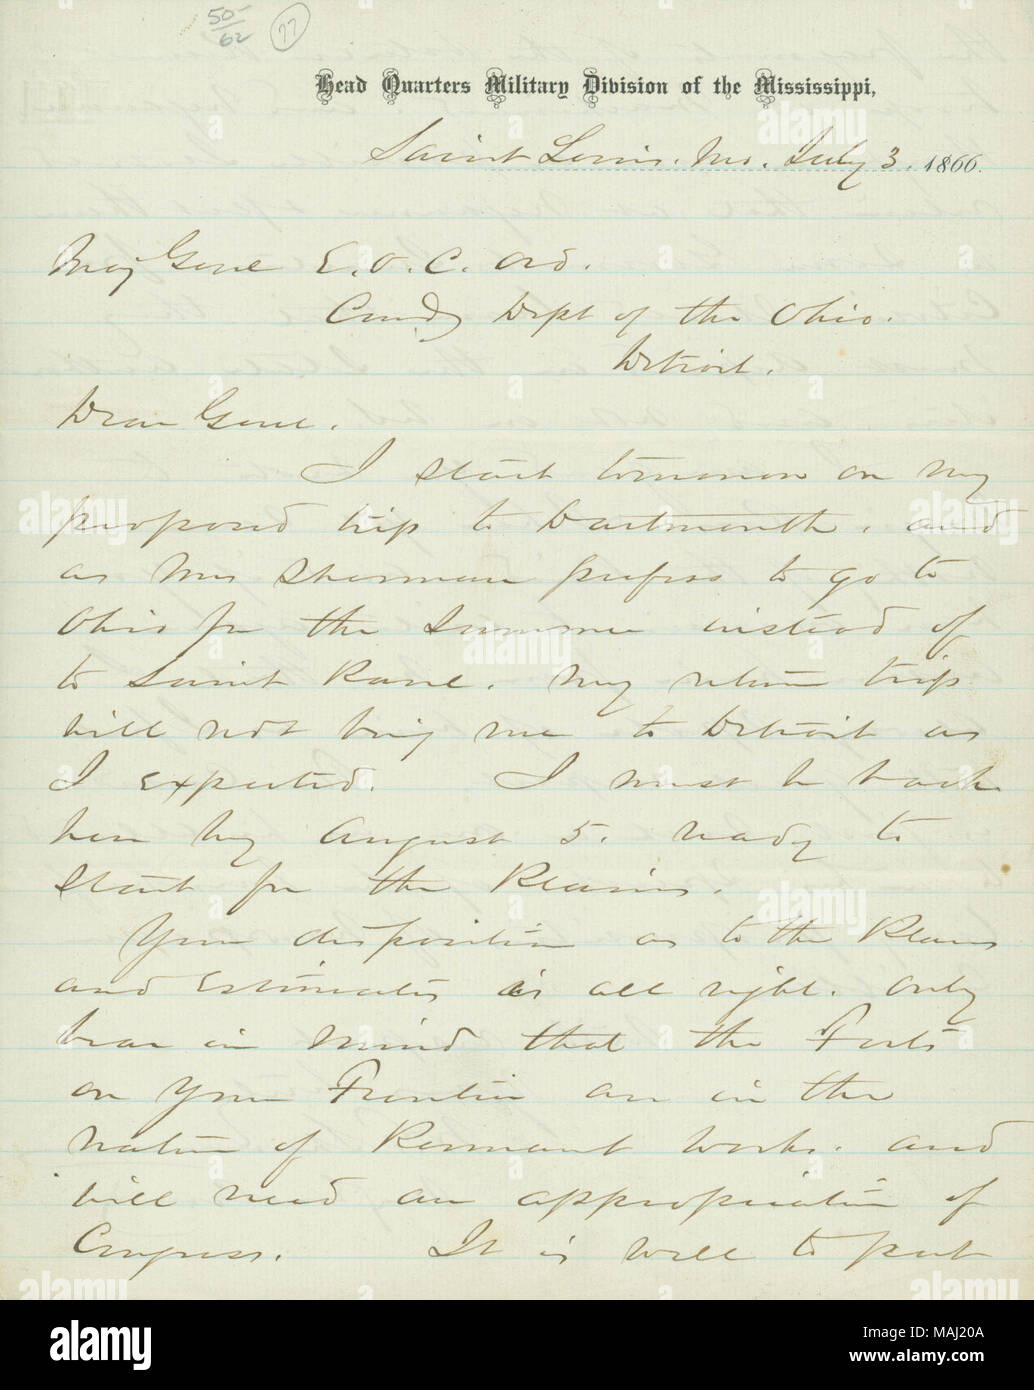 50-
62
77
Head Quarters Military Division of the Mississippi,
Saint Louis, Mo. July 3, 1866.
Maj Genl E.O.C. Ord.
Comdg Dept of the Ohio.
Detroit.
Dear Genl.
I start tomorrow on my
proposed trip to Dartmouth, and
as Mrs Sherman prefers to go to
Ohio for the Summer instead of
to Saint Paul, my return trip
will not bring me to Detroit as
I expected. I must be back
here by August 5. ready to
start for the Plains.
Your disposition as to the Plans
and Estimates is all right. Only
bear in mind that the Forts
on your Frontier are in the
nature of Permant works, and
will need an appropriation of
Congress. It is well to put
alamy
Image ID: MAJ20A
www.alamy.com